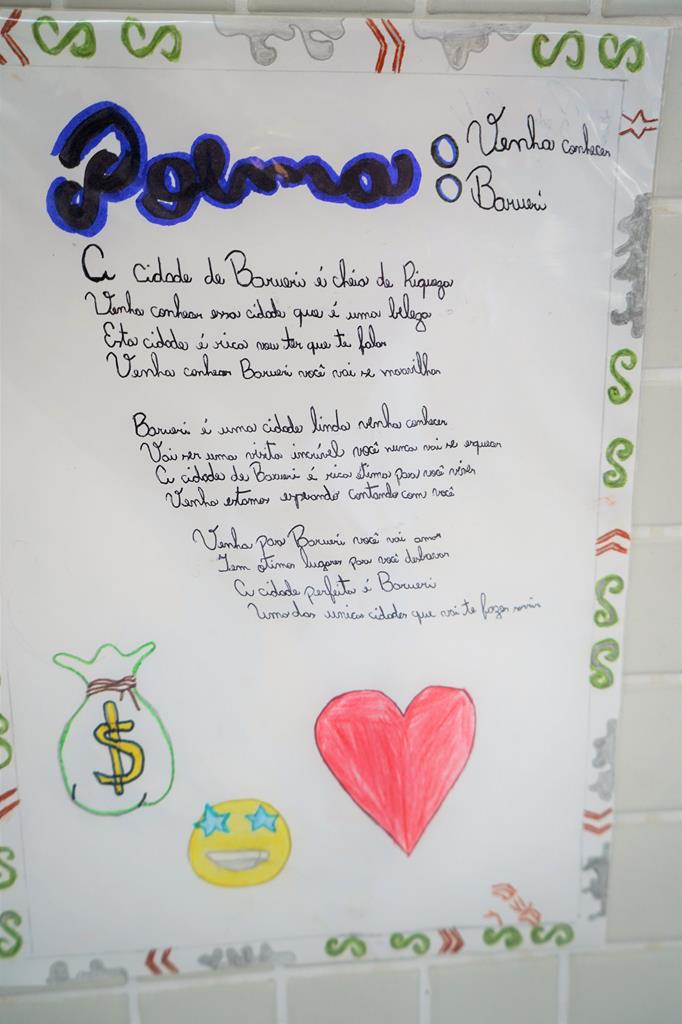 Poema: Venha conhecer
Barueri
A cidade de Barueri é cheia de Riqueza
Venha conhecer essa cidade que é uma beleza
Esta cidade é rica vou ter que te falar
Venha conhecer Barueri você vai se maravilhar
Barueri é uma cidade linda venha conhecer
Vai ser uma visita incrível você nunca vai se esquecer
A cidade de Barueri é rica ótima para você viver
Venha estamos esperando contando com você
Venha para Barueri você vai amar
Tem otimos lugares para você desbravar
A cidade perfeita é Barueri
Uma das unicas cidades que vai te fazer sorrir
$